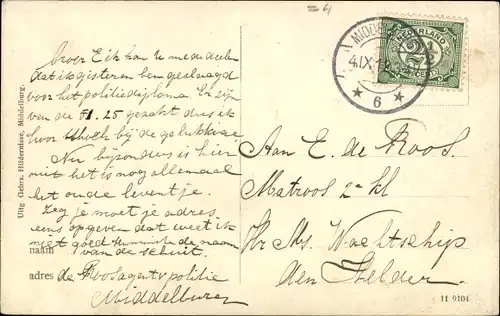 =4
Broer E ik kan u mededeelen
dat ik gisteren ben geslaagd
voor het politiediploma. Er zijn
van de 51. 25 gezakt dus ik
hoor bij de gelukkige
Nu bijzonders is hier
niet het is nog allemaal
het oude leventje.
Zeg je moet je adres
eens opgeven dat weet ik
niet goed de naam
naam van de schuit.
adres de Roos agent v politie
Middelburg
Uitg Gebrs. Hildernisse, Middelburg.
MIDDELBURG
4.IX.
★ 6 ★
NEDERLAND
2½
CENT
Aan E. de Roos.
Matroos 2e kl
Hr Ms. Wachtschip
den Helder
11 9104